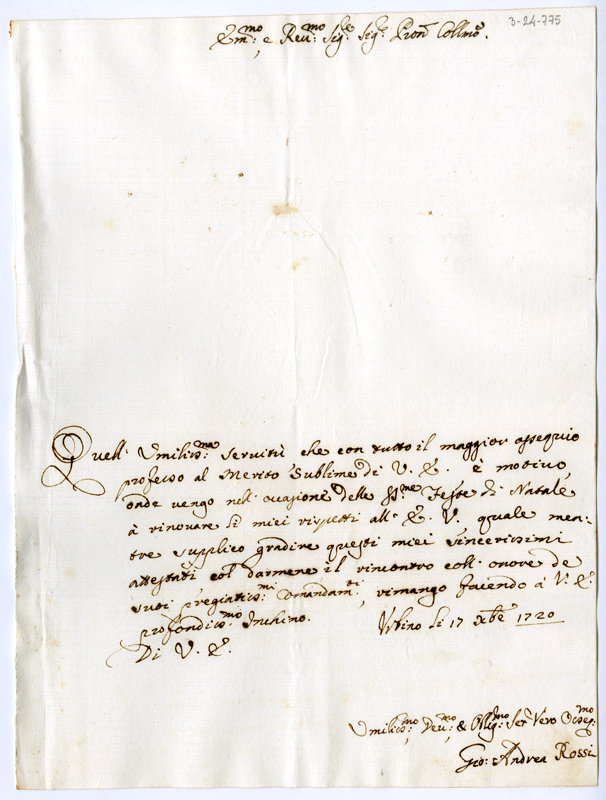 3-24-775
Em:mo e Reu:mo Sig:re Sig:re Pron Collmo.
Quell' Vmiliss:ma Servitù che con tutto il maggior ossequio
professo al Merito Sublime di V. E. è motivo,
onde vengo nell' ocasione delle SS:me Feste di Natale
à rinovare li miei rispetti all' E. V., quale men-
tre supplico gradire questi miei sincerissimi
attestati col darmene il rincontro coll' onore de
suoi pregiatiss:mi Comandam:ti, rimango facendo à V. E.
profondiss:mo Inchino.
Vrbino li 17 Xbre 1720
Di V. E.
Vmiliss:mo Deu:mo, & Obblig:mo Ser Vero Osseq:mo
Gio: Andrea Rossi